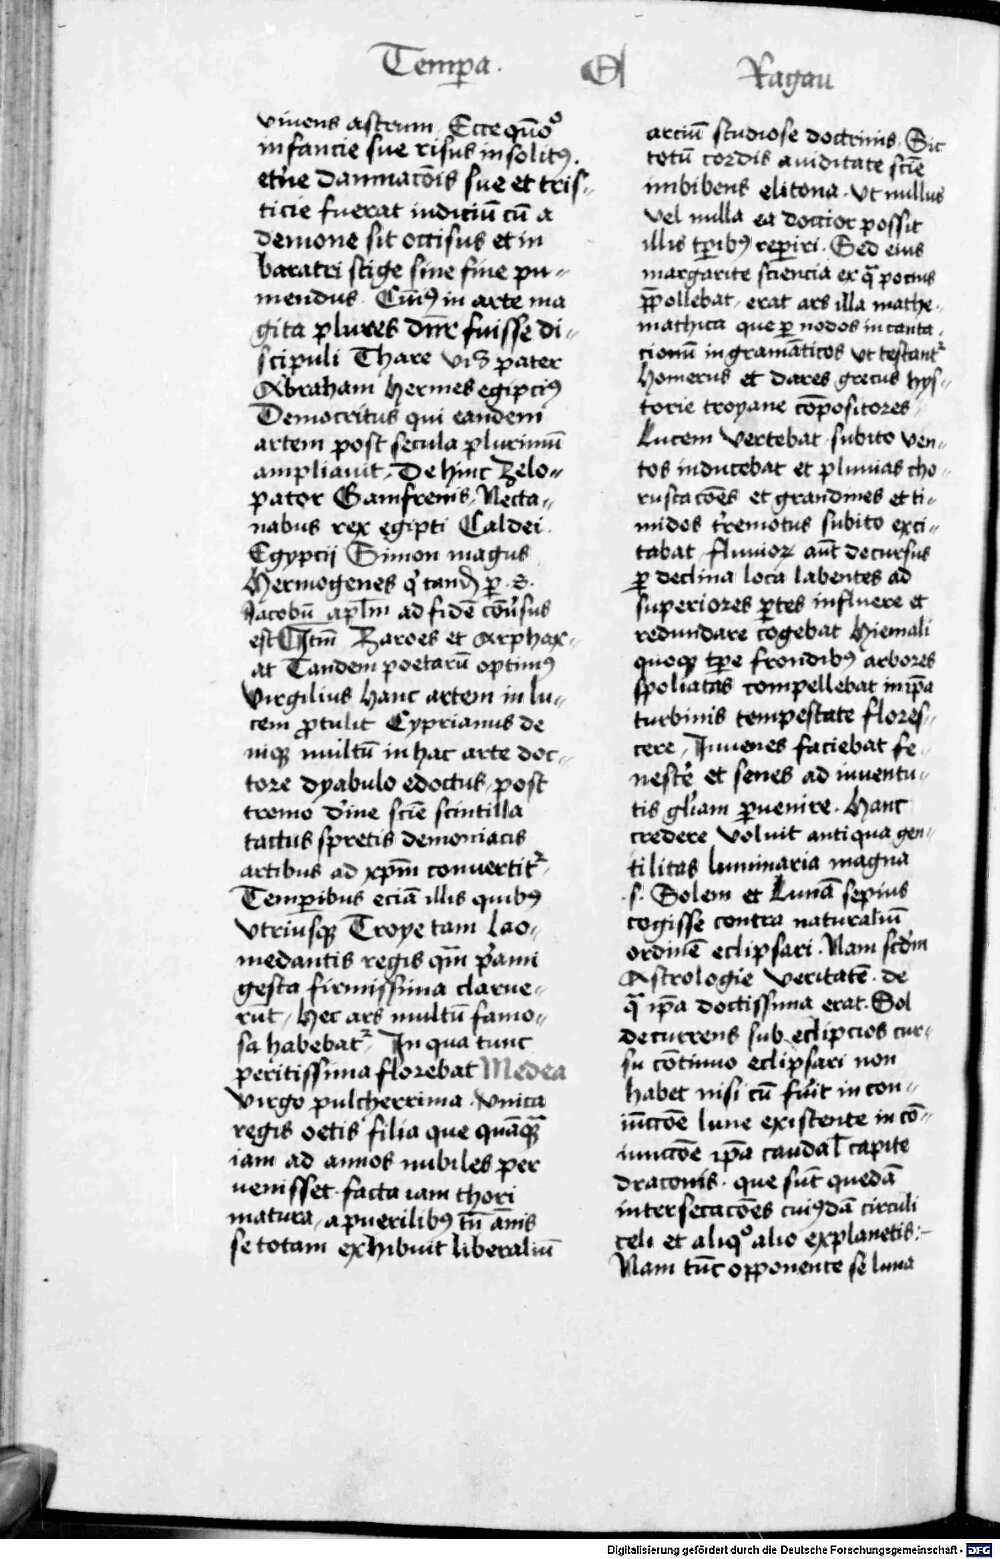 Temp̲a. Ragau
viuens astrum Ecce quō°
infancie sue risus insolitꝰ.
et'ne damnacōis sue et tris-
ticie fuerat inditiū cū a
demone sit occisus et in
baratri stige sine fine pu-
niendus. Cuiꝰ in arte ma
gita plures dnr̄ fuisse di-
scipuli Thare viꝫ pater
Abraham hermes egipciꝰ
Democritus qui eandem
artem post secula plurimū
ampliauit. De hinc Zelo-
pator Gamfrenis, Necta-
nabus rex egipti Caldei
Egyptij Simon magus
Hermogenes q' tandē p̱. S.
Jacobū apl̄m ad fidē cōu'sus
est Itm̄ Zaroes et Arphax-
at Tandem poetarū optimꝰ
Virgilius hanc artem in lu-
cem ꝓtulit Cyprianus de
niqꝫ multū in hac arte doc-
tore dyabulo edoctus, post
tremo d'ine scīe scintilla
tactus spretis demoniacis
artibus ad xp̄m conuertitᷣ
Temp̱ibus eciā illis quibꝰ
vtriusqꝫ Troye tam Lao-
medantis regis qm̄ p'ami
gesta firmissima clarue-
rūt, Hec ars multū famo-
sa habebatᷣ, In qua tunc
peritissima florebat Medea
virgo pulcherrima. vnica
regis oetis filia que quāqᷓꝫ
iam ad annos nubiles per
uenisset. facta iam thori
matura, a puerilibꝰ tn̄ ānis
se totam exhibuit liberaliū
arciū studiose doctrinis, Sic
totū cordis auiditate scīe
imbibens elitona. vt nullus
vel nulla ea doctior possit
illis tp̱ibꝰ rep̱iri. Sed eius
margarite sciencia ex qᷓ pocius
p̄pollebat, erat ars illa mathe.
mathica que p̱ nodos incanta.
cionū in gramāticos vt testantᷣ
Homerus et dares grecus hys-
torie troyane cōpositores,
Lucem vertebat subito ven-
tos inducebat et pluuias cho-
ruscacōes et grandines et ti-
midos t'remotus subito exci-
tabat. fluuioꝝ aūt decursus
p̱ declina loca labentes ad
superiores p̱tes influere et
redundare cogebat Hiemali
quoqꝫ tp̱e frondibꝰ arbores
spoliatas compellebat in ip̄a
turbinis tempestate flores-
cere, Iuuenes faciebat se-
nesc'e et senes ad iuuentu-
tis gl'iam p̱uenire. Hanc
credere voluit antiqua gen-
tilitas luminaria magna
.s. Solem et Lunā sepius
cogisse contra naturaliū
ordinē eclipsari. Nam scd'm
Astrologie veritatē. de
qᷓ ip̄a doctissima erat. Sol
decurrens sub eclipcios cur-
su cōtinuo eclipsari non
habet nisi cū fu'it in con-
iūccōe lune existente in cō-
iunccōe ip̄a caudal' capite
draconis. que sūt quedā
intersecacōes cuiꝰdā circuli
celi et aliq° alio explanetis:-
Nam tūc opponente se luna